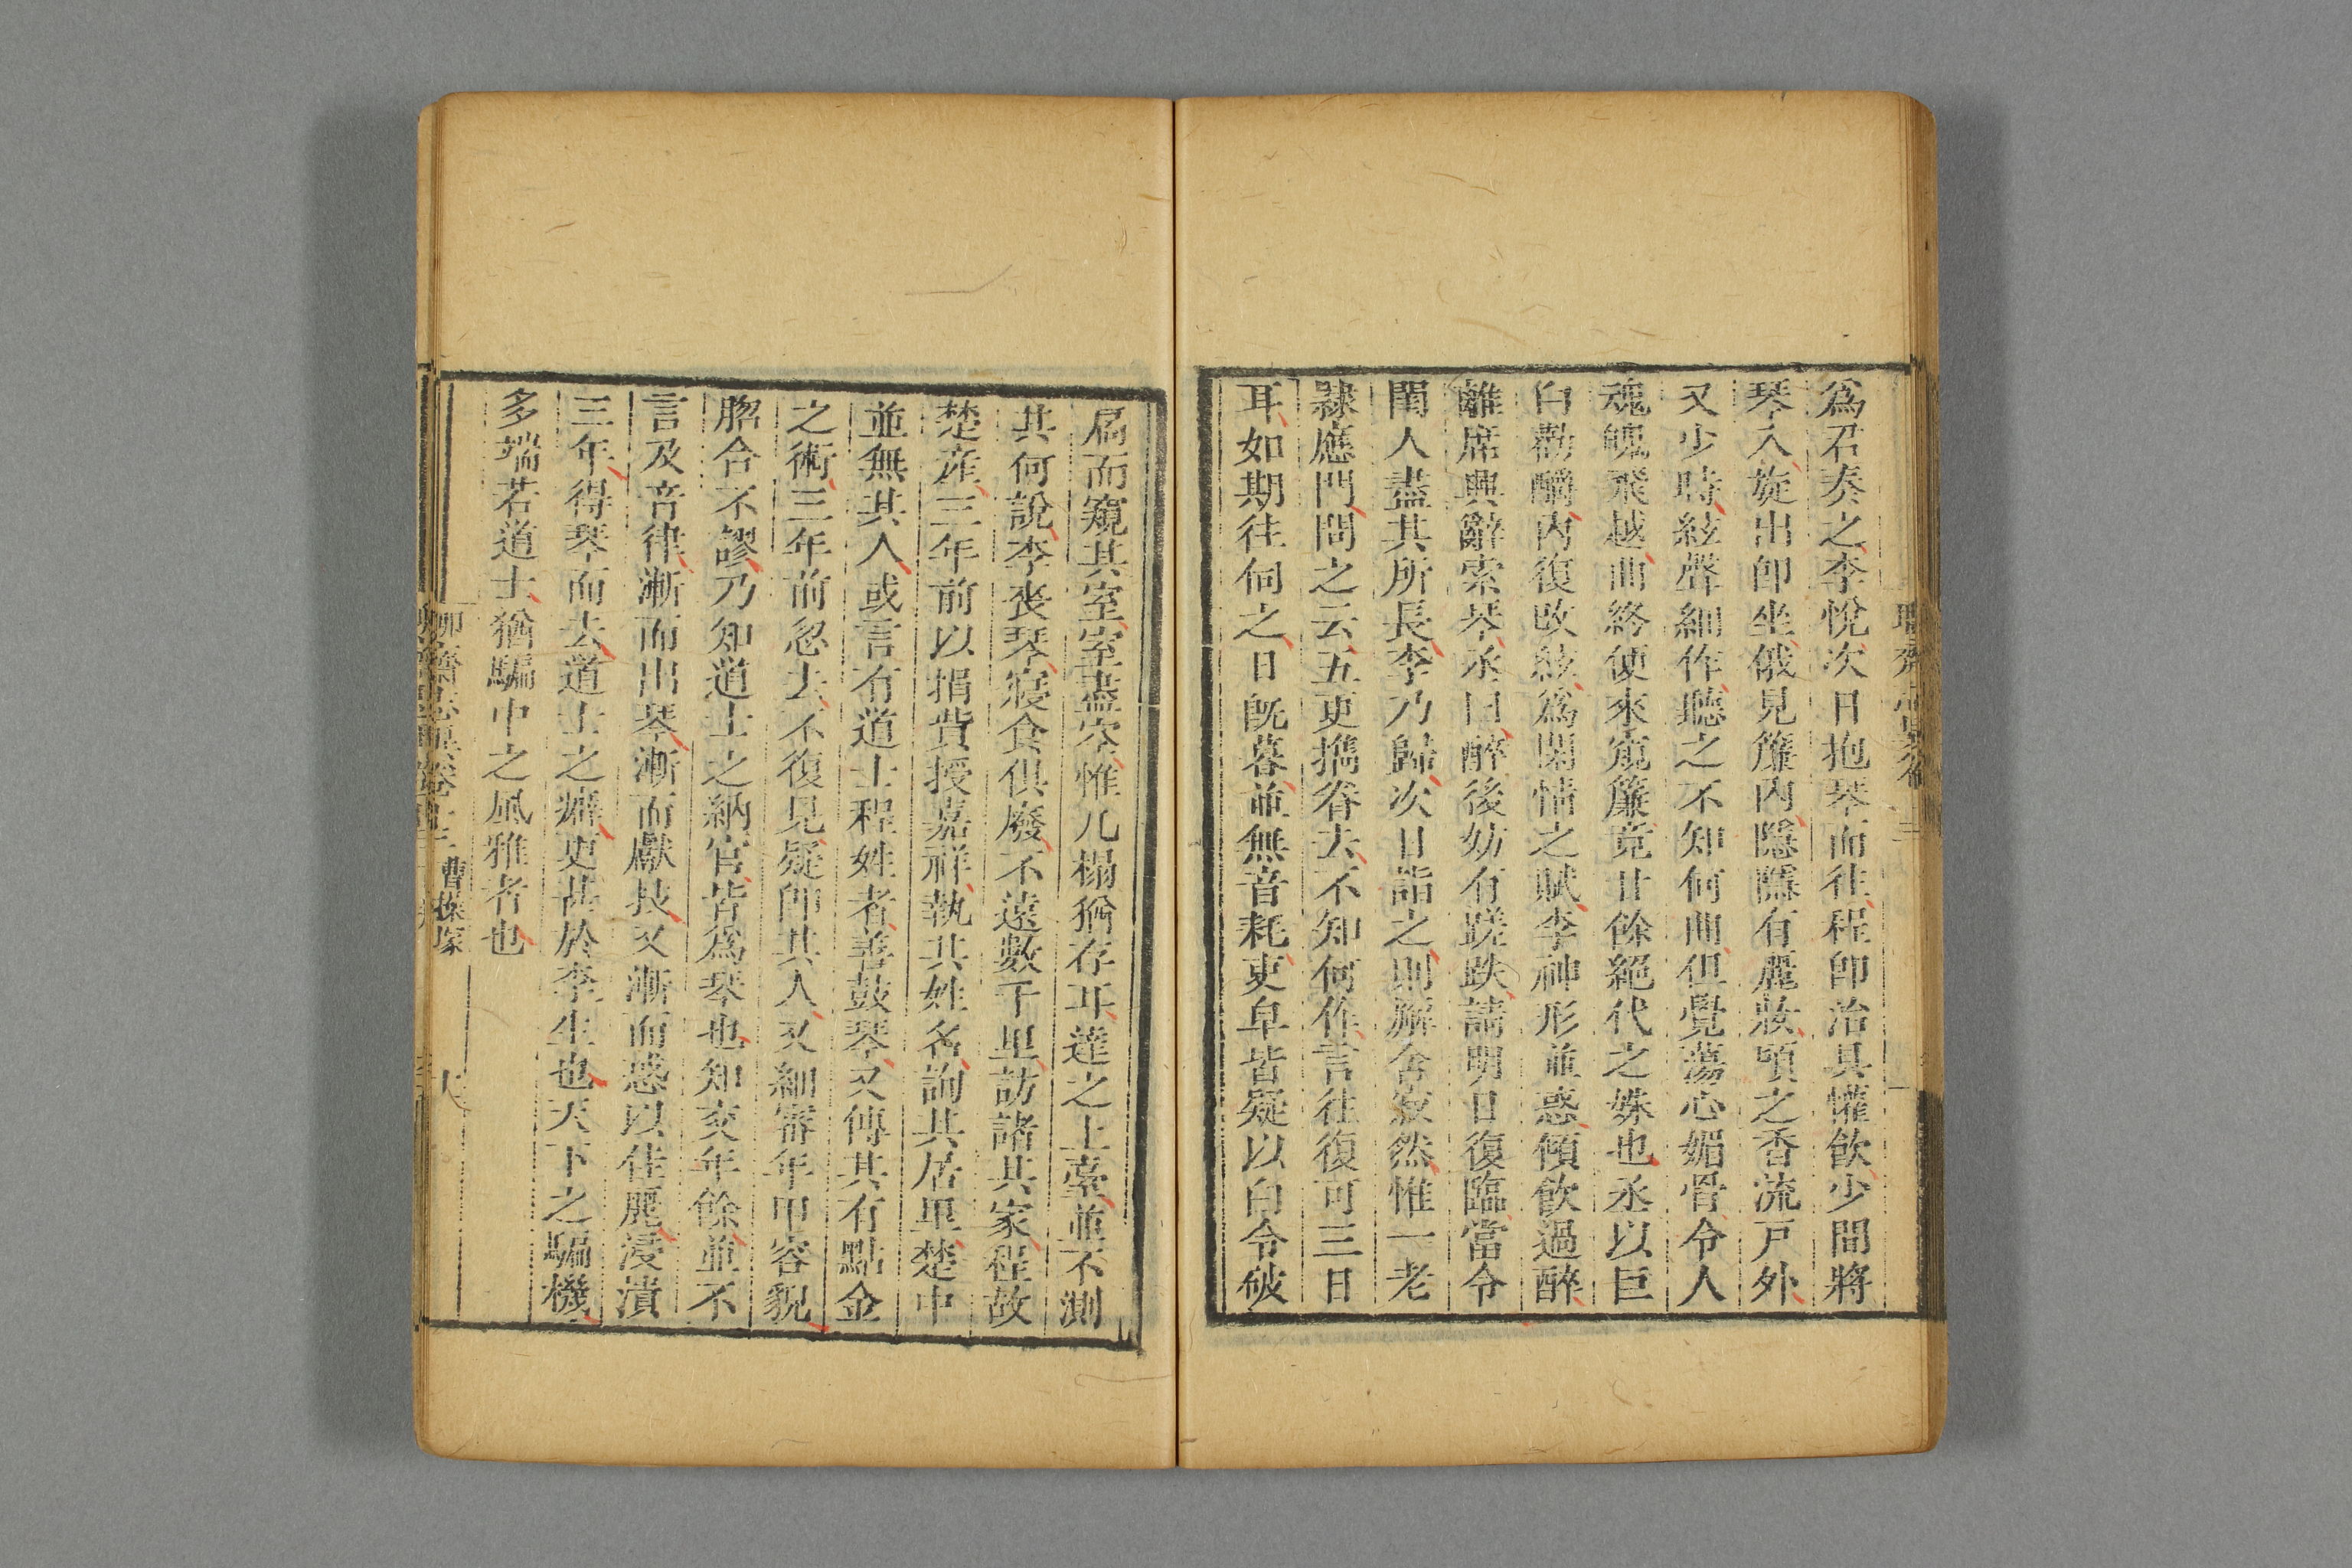 爲君奏之李悅次日抱琴而往程卽治具懽飮少間將
琴入旋出卽坐俄見簾內隱隱有麗妝頃之香流戸外
又少時絃聲細作聽之不知何曲但覺蕩心媚骨令人
魂魄飛越曲終便來窺簾竟廿餘絕代之姝也丞以巨
白勸釂內復改絃爲閑情之賦李神形並惑傾飮過醉
離席興辭索琴丞曰醉後妨有蹉跌請明日復臨當令
閨人盡其所長李乃歸次日詣之則廨舍寂然惟一老
隷應門問之云五更攜眷去不知何作言往復可三日
耳如期往伺之日旣暮並無音耗吏皁皆疑以白令破
扃而窺其室室盡空惟几榻猶存耳達之上臺並不測
其何說李喪琴寢食俱廢不遠數千里訪諸其家程故
楚產三年前以捐貲授嘉祥執其姓名詢其居里楚中
並無其人或言有道士程姓者善鼓琴又傳其有點金
之術三年前忽去不復見疑卽其人又細審年甲容貌
脗合不謬乃知道士之納官皆爲琴也知交年餘並不
言及音律漸而出琴漸而獻技又漸而惑以佳麗浸漬
三年得琴而去道士之癖更甚於李生也天下之騙機
多端若道士猶騙中之風雅者也
曹操冡